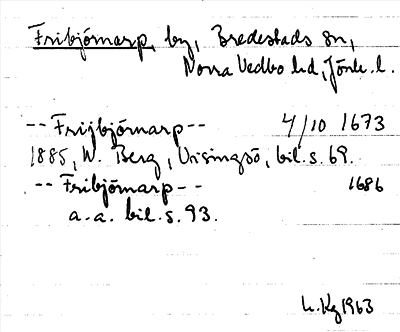 Fribjörnarp, by, Bredestads sn,
Norra Vedbo hd, Jönk. l.
-- Frijbjörnarp -- 4/10 1673
1885, W. Berg, Visingsö, bil. s. 69.
-- Fribjörnarp -- 1686
a.a. bil. s. 93.
1963